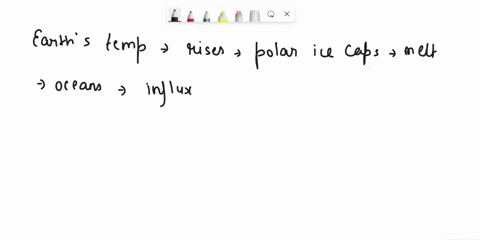 Earth's temp → rises → polar ice caps → melt
→ oceans → influx